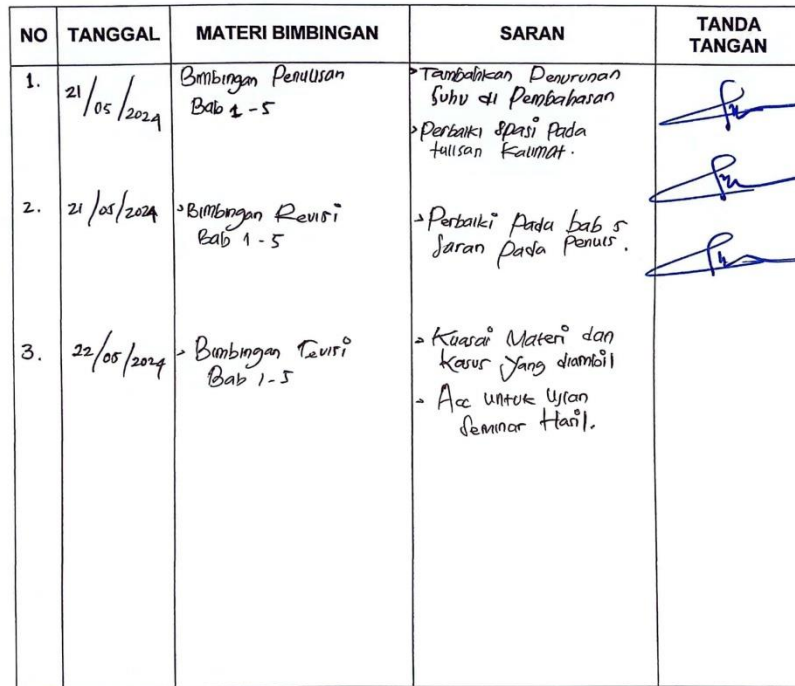 NO TANGGAL MATERI BIMBINGAN SARAN TANDA TANGAN
1. 21/05/2024
Bimbingan Penulisan
Bab 1 - 5
> Tambahkan Penurunan
Suhu di Pembahasan
> Perbaiki spasi Pada
tulisan Kalimat.
2. 21/05/2024
> Bimbingan Revisi
Bab 1 - 5
> Perbaiki Pada bab 5
Saran pada Penulis.
3. 22/05/2024
> Bimbingan revisi
Bab 1-5
> Kuasai Materi dan
Kasus yang diambil
> Acc untuk Ujian
Seminar Hasil.